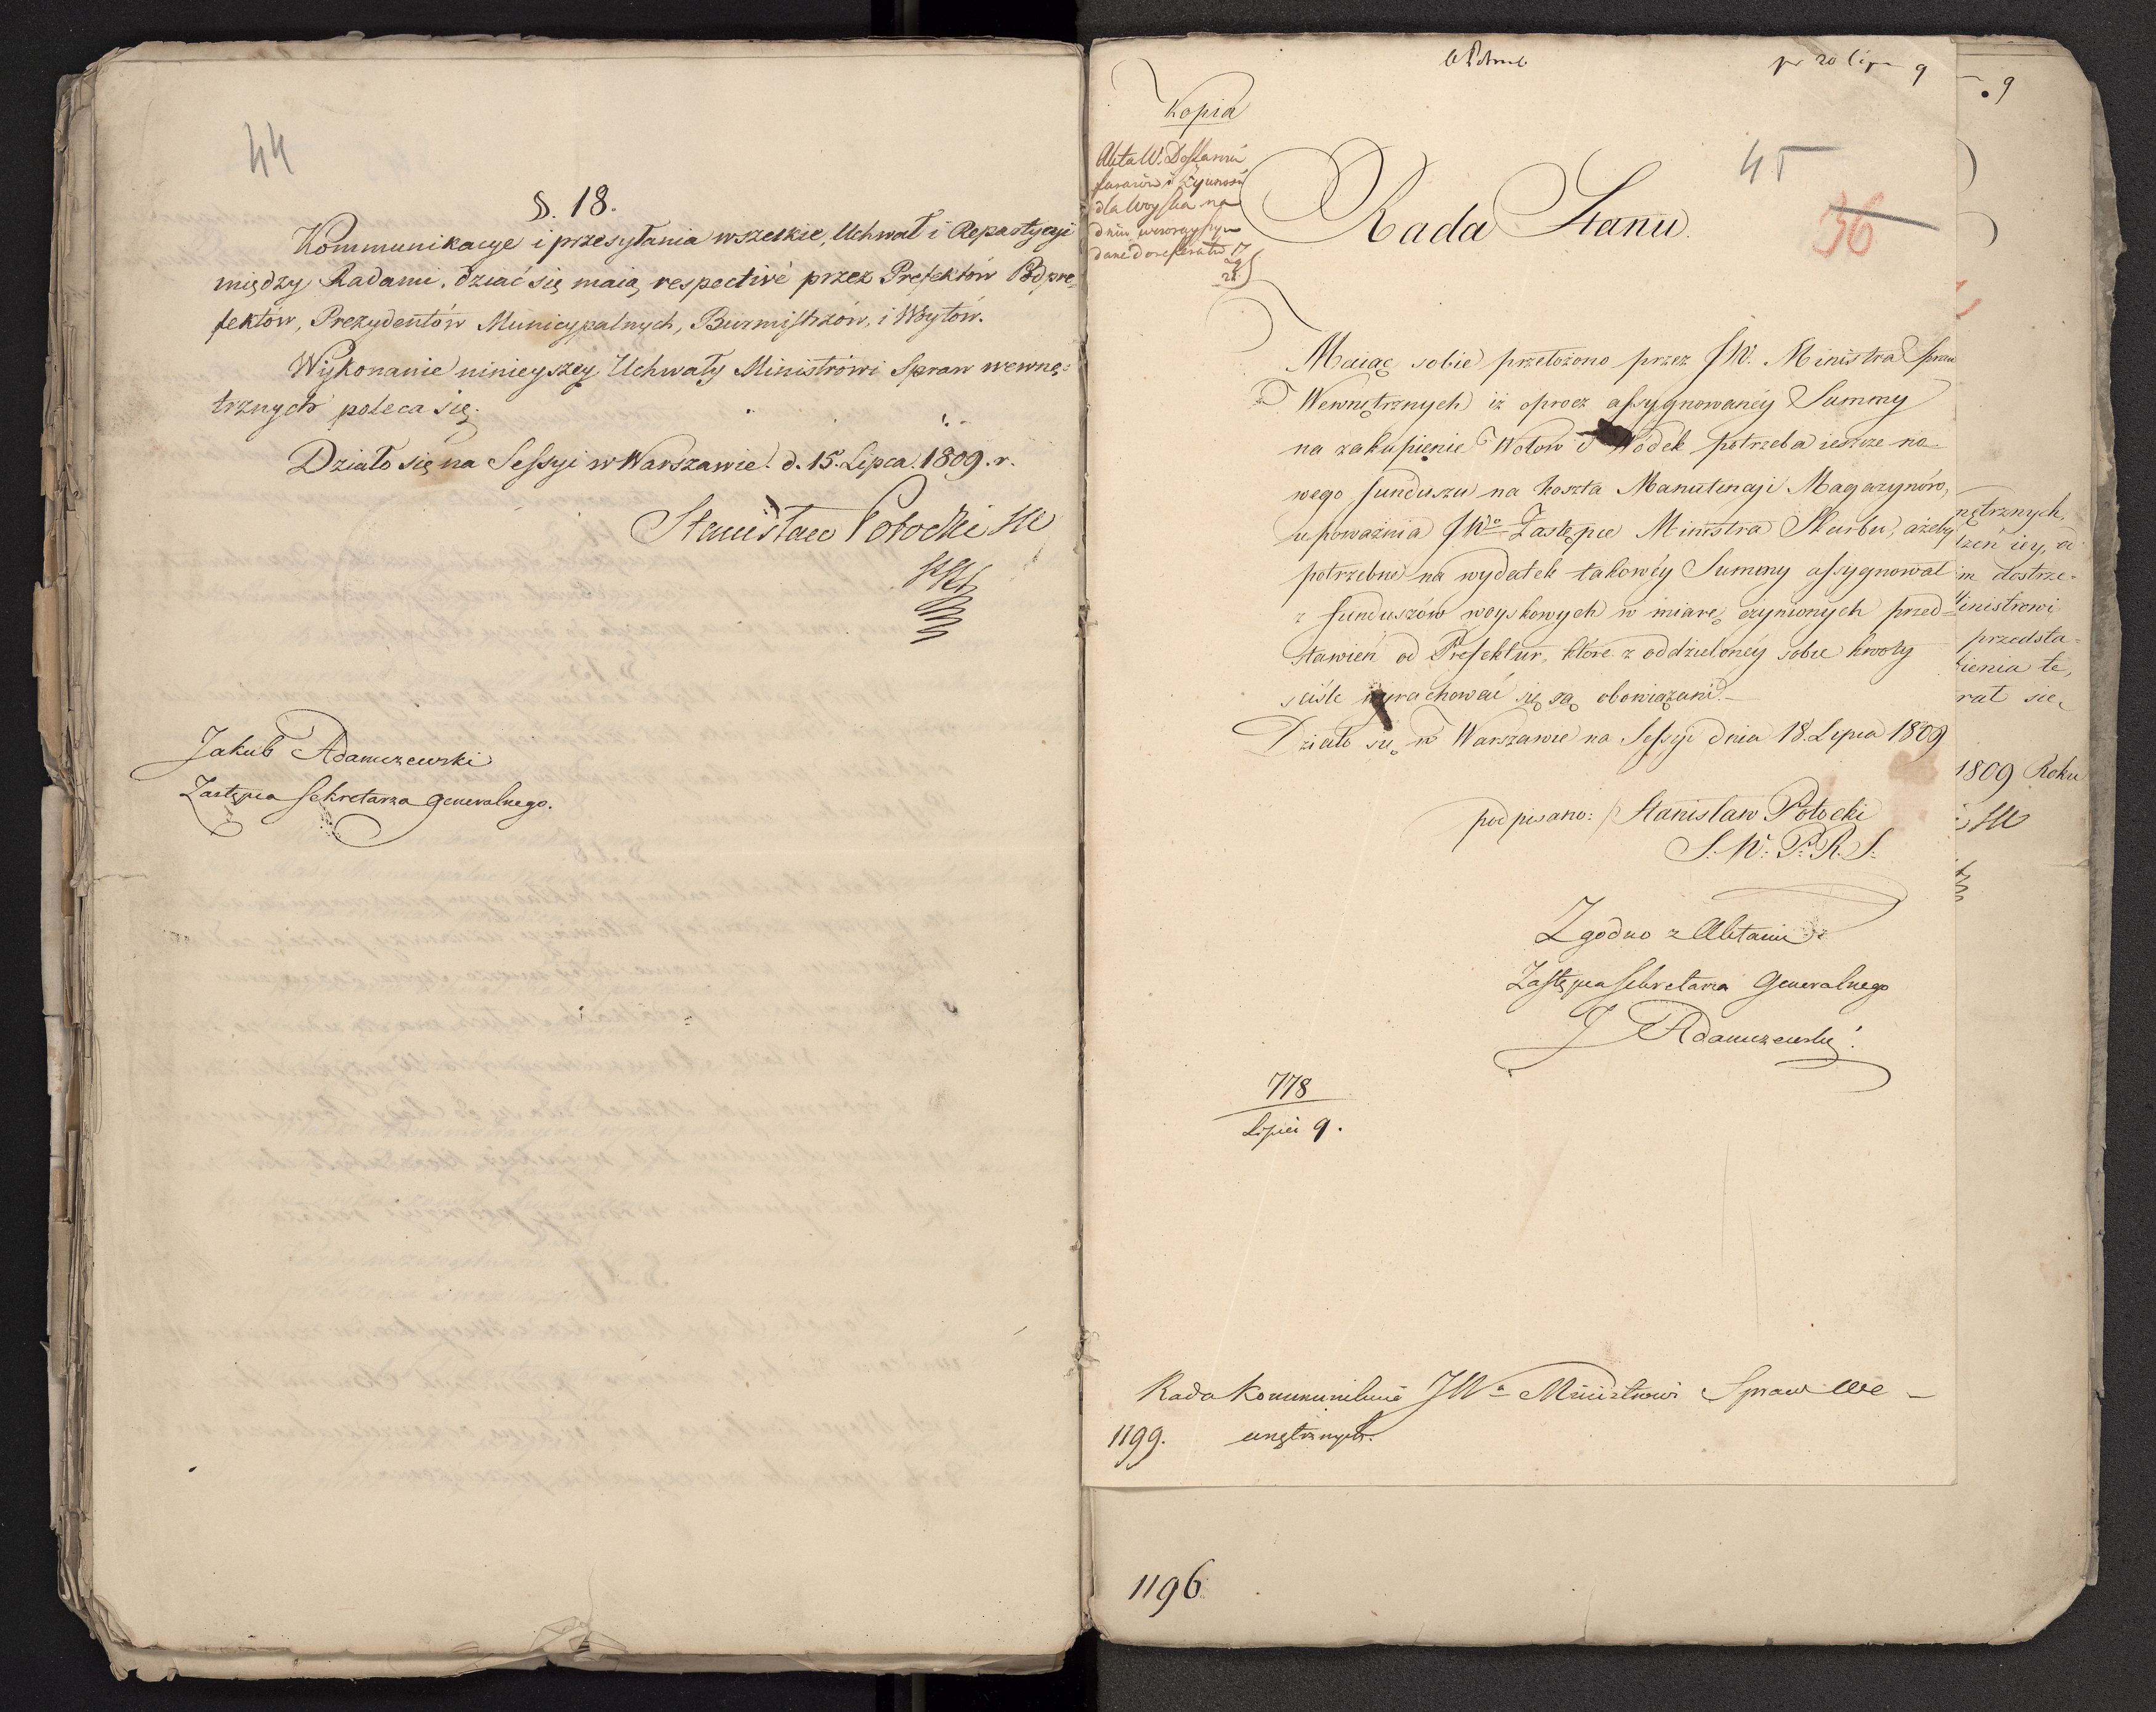 44
§. 18.
Kommunikacye i przesyłania wszelkie, Uchwał i Repartycyi
między Radami, dziać się maią respectivé przez Prefektów Podpre-
fektów, Prezydentów Municypalnych, Burmistrzów, i Woytów.
Wykonanie ninieyszey Uchwały Ministrowi Spraw wewnę-
trznych poleca się.
Działo się na Sessyi w Warszawie d. 15. Lipca. 1809. r.
Stanisław Potocki
Jakub Adamczewski
Zastępca Sekretarza Generalnego.
9
Kopia
Akta W. Dostawie
furazów i żywności
dla Woyska na
dniu wczorayszym
dane do referatu
45
36
Rada Stanu.
Maiąc sobie przełożono przez JW. Ministra Spraw
Wewnętrznych iż oprocz assygnowanéy Summy
na zakupienie Wołow i Wódek potrzeba ieszcze no-
wego funduszu na koszta Manutencyi Magazynów,
upoważnia JWo Zastępce Ministra Skarbu, ażeby
potrzebne na wydatek takowéy Summy assygnował
z funduszów woyskowych w miarę czynionych przed-
stawień od Prefektur, które z oddzielonéy sobie kwoty
ściśle wyrachować się są obowiązani.—
Działo się w Warszawie na Sessyi dnia 18. Lipca 1809
podpisano: / Stanisław Potocki
S. W. P. R. S.
Zgodno z Aktami
Zastępca Sekretarza Generalnego
J Adamczewski.
778
Lipiec 9.
Rada Kommunikuie JWo Ministrowi Spraw We-
1199. wnętrznych.
1196
9
nętrznych,
dostrze-
inistrowi
przedsta-
ienia te,
rał się
1809 Roku